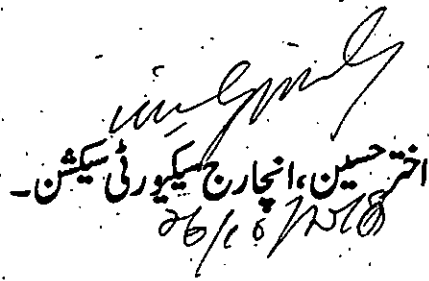 اختر حسین، انچارج سیکیورٹی سیکشن۔
26/10/2018